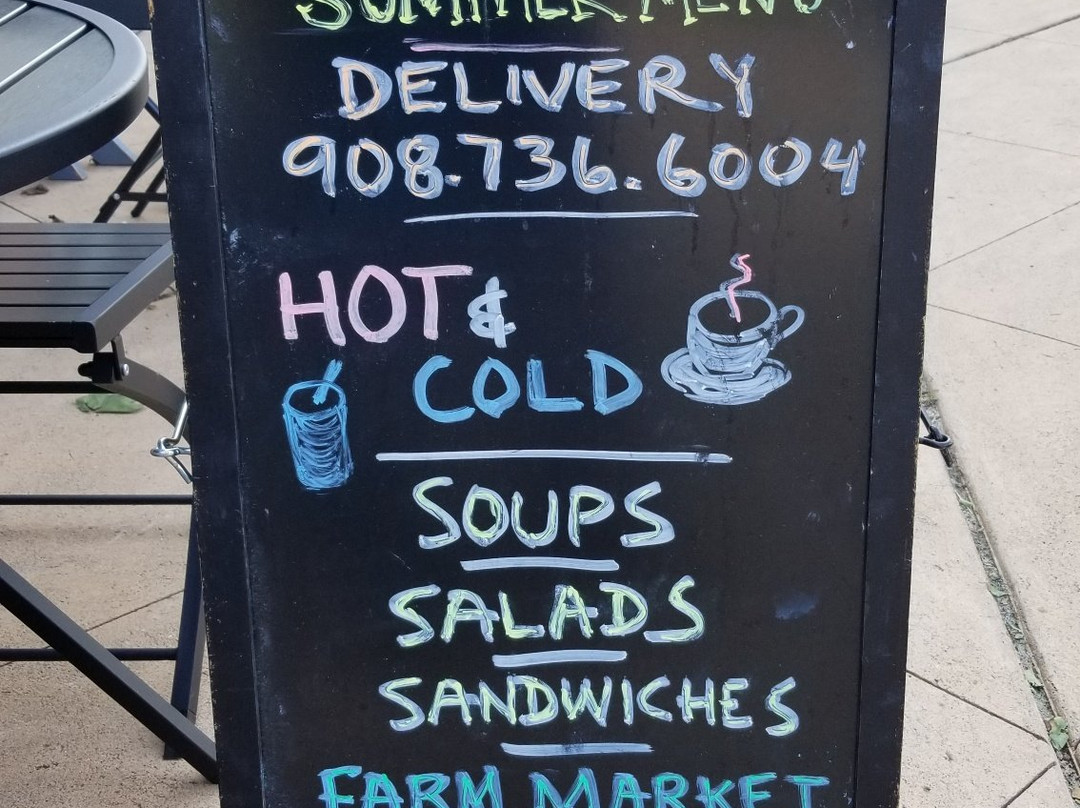 SUMMER MENU
DELIVERY
908.736.6004
HOT &
COLD
SOUPS
SALADS
SANDWICHES
FARM MARKET